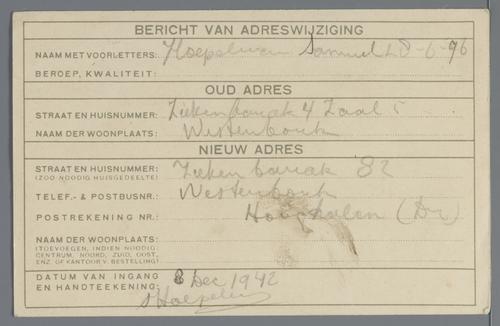 BERICHT VAN ADRESWIJZIGING
NAAM MET VOORLETTERS: Hoepelman Samuel 28-6-96
BEROEP, KWALITEIT:
OUD ADRES
STRAAT EN HUISNUMMER: Ziekenbarak 4 Zaal 5
NAAM DER WOONPLAATS: Westenbork
NIEUW ADRES
STRAAT EN HUISNUMMER: Zieken barak 82
(ZOO NOODIG HUISGEDEELTE)
TELEF.- & POSTBUSNR.: Westenbork
POSTREKENING NR.: Hooghalen (Dr)
NAAM DER WOONPLAATS:
(TOEVOEGEN, INDIEN NOODIG:
CENTRUM, NOORD, ZUID, OOST,
ENZ. OF KANTOOR V. BESTELLING)
DATUM VAN INGANG 8 Dec 1942
EN HANDTEEKENING: S Hoepelman